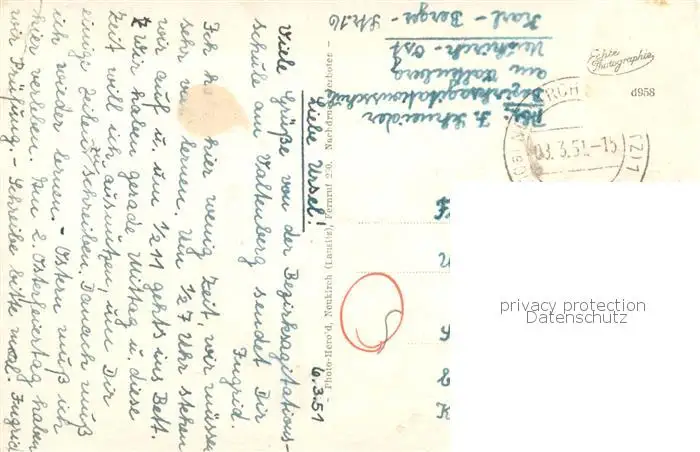 6.3.51
Liebe Ursel!
Viele Grüße von der Bezirksagitations-
schule am Valtenberg sendet Dir
Ingrid.
Ich habe hier wenig Zeit, wir müssen
sehr lernen. Um 1/2 7 Uhr stehen
wir auf u. um 1/2 11 gehts ins Bett.
Wir haben gerade Mittag u. diese
Zeit will ich ausnützen, um Dir
einige Zeilen zu schreiben. Danach muß
ich wieder lernen. - Ostern muß ich
hier verleben. Am 2. Osterfeiertag haben
wir Prüfung. - Schreibe bitte mal. Ingrid
- Photo-Herold, Neukirch (Lausitz), Fernruf 220. Nachdruck verboten -
Abs: I. Schneider
Bezirksagitationsschule
am Valtenberg
Neukirch-Ost
Karl-Berger-Str. 16
Echte
Photographie
d958
03.3.51-15
privacy protection
Datenschutz